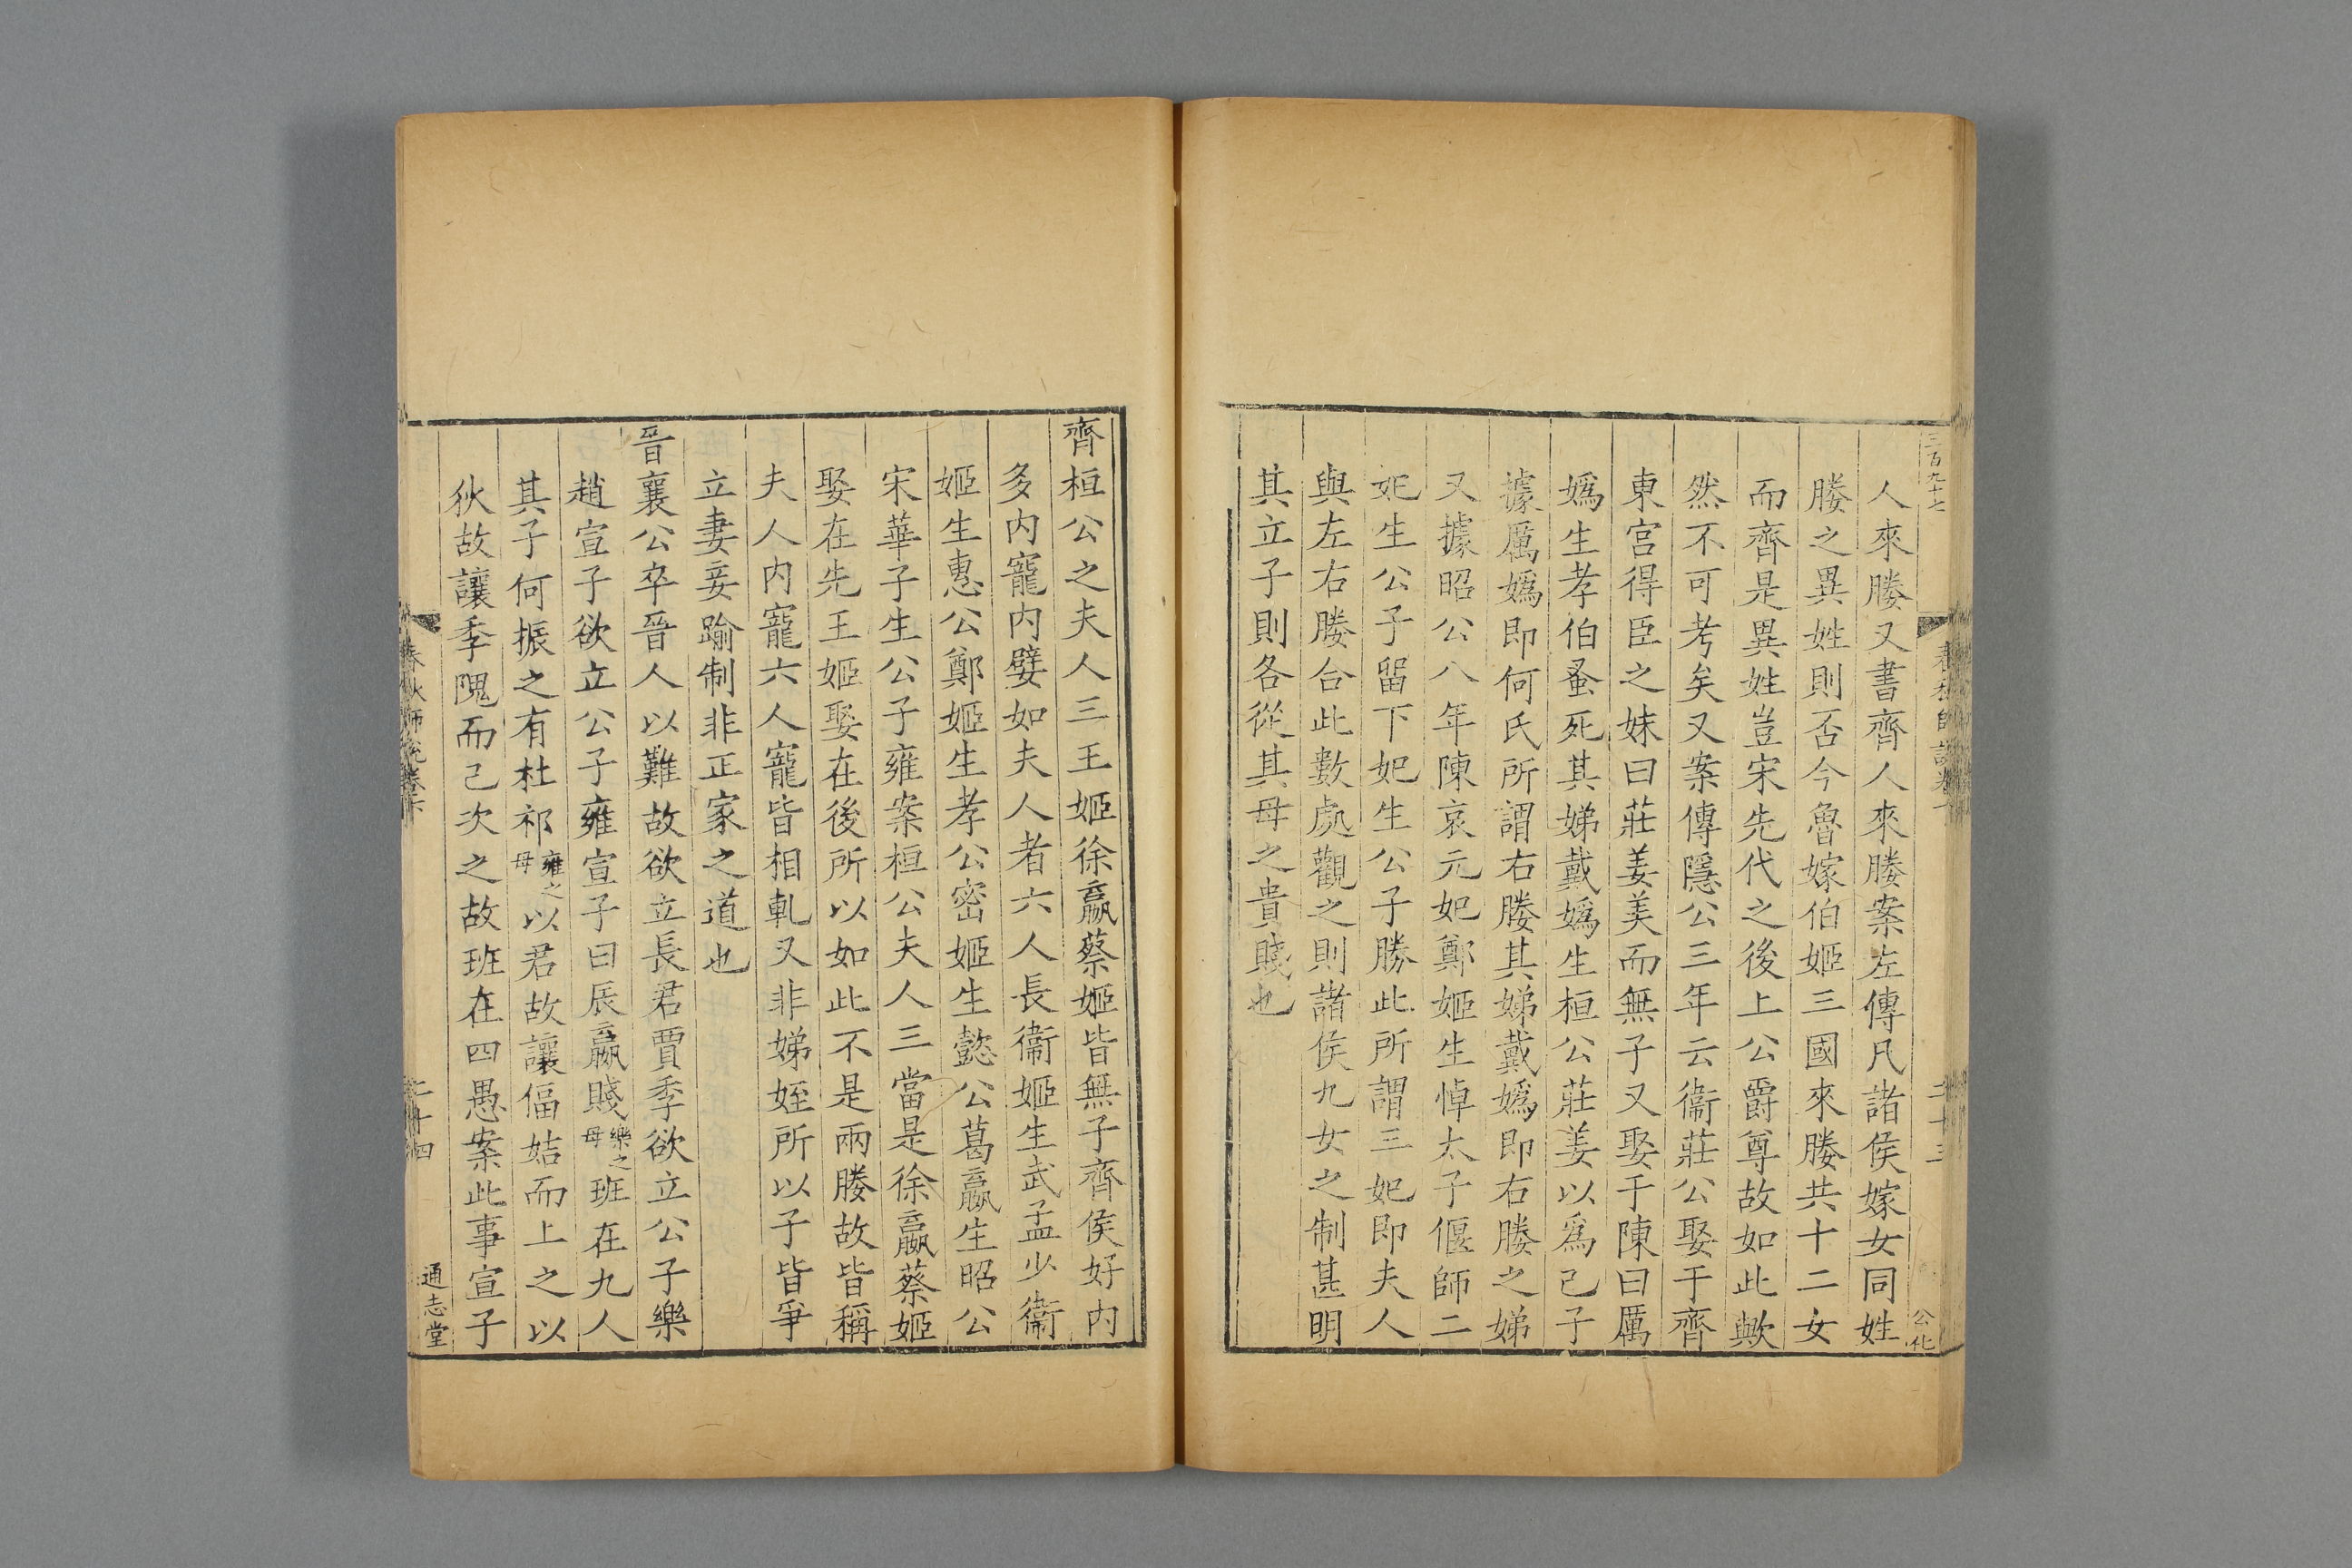 三百九十七
人來媵又書齊人來媵案左傳凡諸侯嫁女同姓
媵之異姓則否今魯嫁伯姬三國來媵共十二女
而齊是異姓豈宋先代之後上公爵尊故如此歟
然不可考矣又案傳隱公三年云衞莊公娶于齊
東宮得臣之妹曰莊姜美而無子又娶于陳曰厲
嬀生孝伯蚤死其娣戴嬀生桓公莊姜以爲己子
據厲嬀即何氏所謂右媵其娣戴嬀即右媵之娣
又據昭公八年陳哀元妃鄭姬生悼太子偃師二
妃生公子留下妃生公子勝此所謂三妃即夫人
與左右媵合此數處觀之則諸侯九女之制甚明
其立子則各從其母之貴賤也
齊桓公之夫人三王姬徐嬴蔡姬皆無子齊侯好内
多内寵内嬖如夫人者六人長衞姬生武孟少衞
姬生惠公鄭姬生孝公密姬生懿公葛嬴生昭公
宋華子生公子雍案桓公夫人三當是徐嬴蔡姬
娶在先王姬娶在後所以如此不是兩媵故皆稱
夫人内寵六人寵皆相軋又非娣姪所以子皆爭
立妻妾踰制非正家之道也
晉襄公卒晉人以難故欲立長君賈季欲立公子樂
趙宣子欲立公子雍宣子曰辰嬴賤樂之母班在九人
其子何振之有杜祁雍之母以君故讓偪姞而上之以
狄故讓季隗而己次之故班在四愚案此事宣子
春秋師說卷下
二十四
通志堂